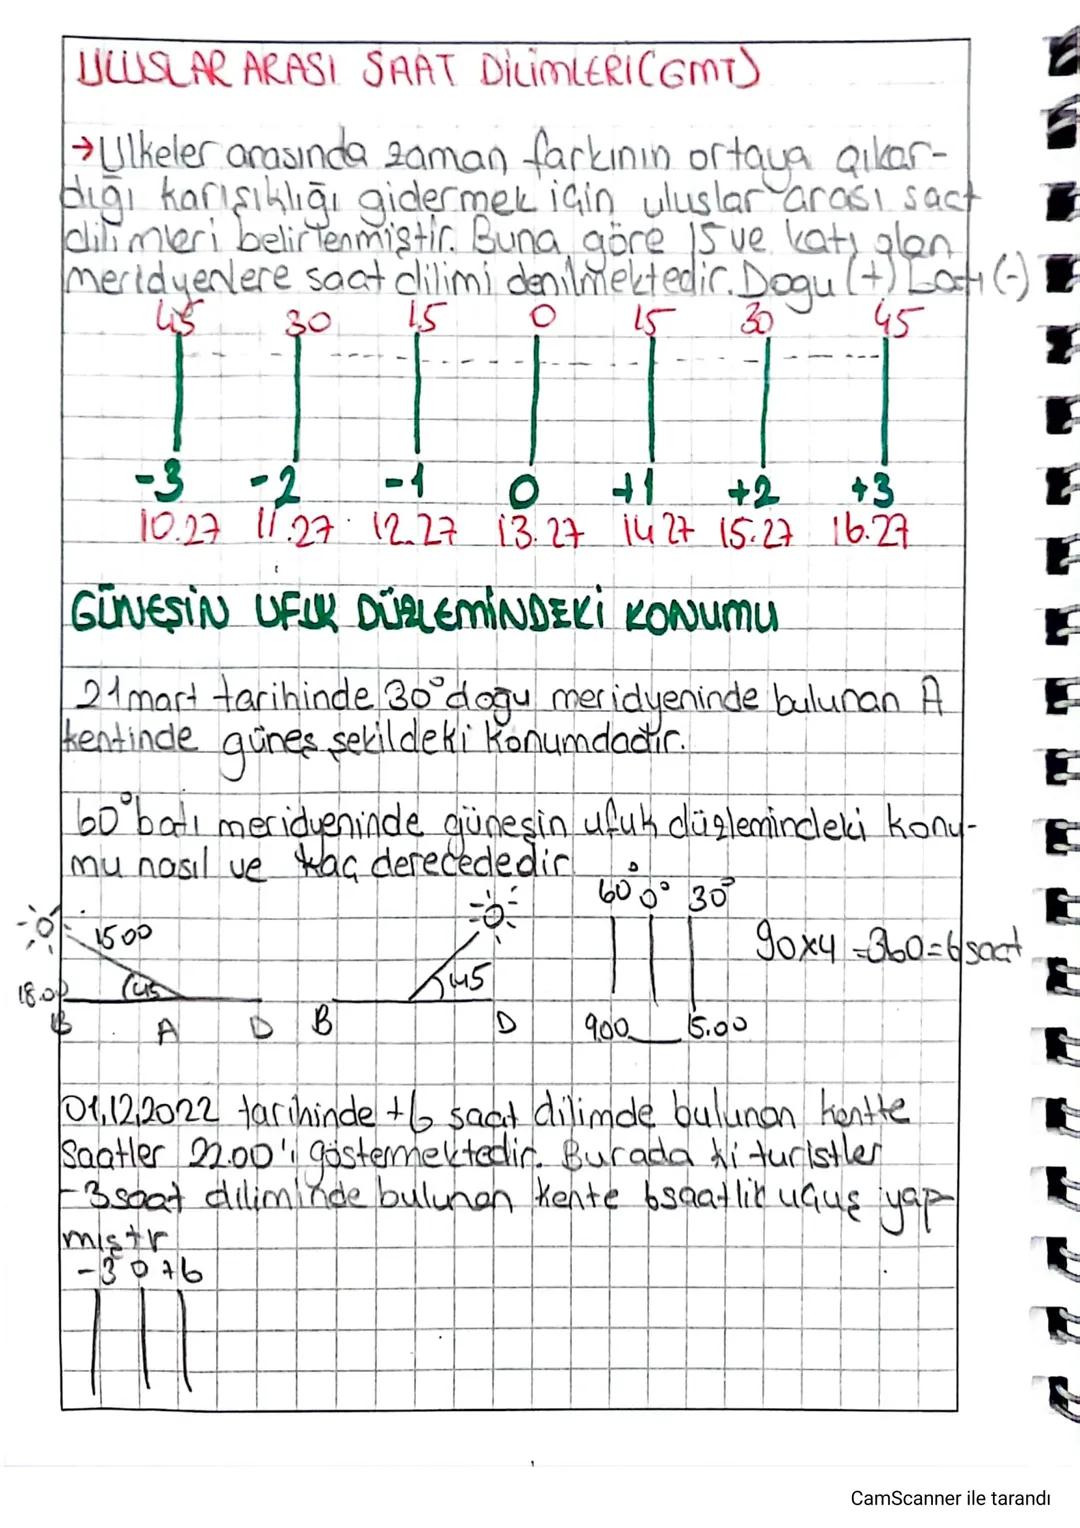 ULUSLAR ARASI SAAT DİLİMLERİ(GMT)
→Ulkeler arasında zaman farkının ortaya çıkar-
dığı karışıklığı gidermek için uluslar arası saat
dilimleri belirlenmiştir. Buna göre 15 ve katı olan
meridyenlere saat dilimi denilmektedir. Dogu (+) Batı (-)
45 30 15 0 15 30 45
-3 -2 -1 0 +1 +2 +3
10.27 11.27 12.27 13.27 14 27 15.27 16.27
GÜNEŞİN UFUK DÜZLEMİNDEKİ KONUMU
21 mart tarihinde 30° doğu meridyeninde bulunan A
kentinde güneş şekildeki konumdadır.
60° batı meridyeninde güneşin ufuk düzlemindeki konu-
mu nasıl ve kaç derecededir
60° 0° 30°
1500
90x4 =360=6 saat
18.00 45 45
B A D B D 9.00 15.00
01,12,2022 tarihinde +6 saat dilimde bulunan kentte
Saatler 22.00'ı göstermektedir. Burada ki turistler
-3 saat diliminde bulunan kente 6 saatlik uçuş yap-
mıştır
-3 0 +6
CamScanner ile tarandı